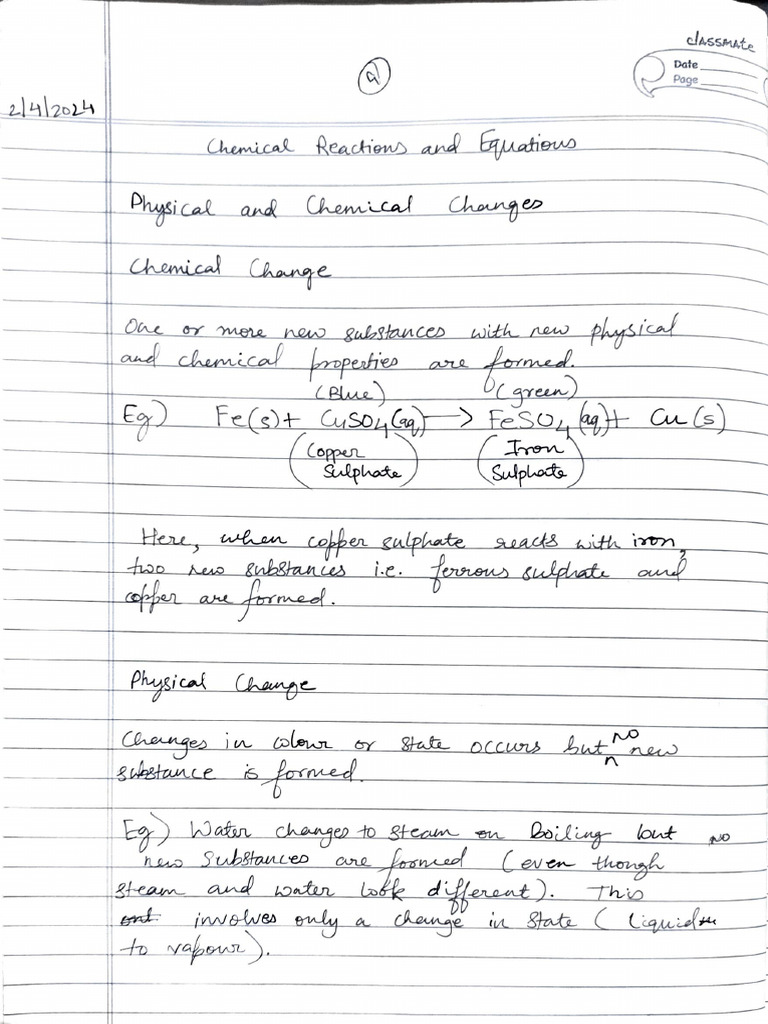 classmate
Date
Page
a
2/4/2024
Chemical Reactions and Equations
Physical and Chemical Changes
Chemical Change
One or more new substances with new physical
and chemical properties are formed.
(Blue) (green)
Eg) Fe(s) + CuSO4(aq) → FeSO4(aq) + Cu(s)
(Copper Sulphate) (Iron Sulphate)
Here, when copper sulphate reacts with iron,
two new substances i.e. ferrous sulphate and
copper are formed.
Physical Change
Changes in colour or state occurs but no new
substance is formed.
Eg) Water changes to steam on boiling but no
new substances are formed (even though
steam and water look different). This
involves only a change in state (liquid
to vapour).